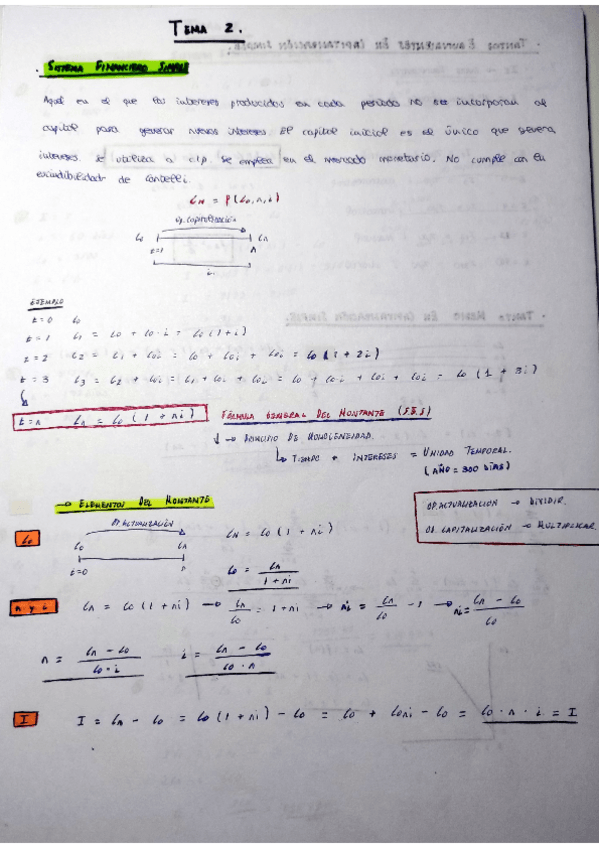 TEMA 2.
· SISTEMA FINANCIERO SIMPLE
Aquel en el que los intereses producidos en cada periodo NO se incorporan al
capital para generar nuevos intereses. El capital inicial es el único que genera
intereses. Se utiliza a c/p. Se emplea en el mercado monetario. No cumple con la
escindibilidad de Cantelli.
Cn = f(Co, n, i)
op. capitalización
Co Cn
t=1 n
i
EJEMPLO
t=0 Co
t=1 C1 = Co + Co·i = Co(1+i)
t=2 C2 = C1 + Coi = Co + Coi + Coi = Co(1+2i)
t=3 C3 = C2 + Coi = C1 + Coi + Coi = Co + Coi + Coi + Coi = Co (1 + 3i)
t=n Cn = Co (1 + ni) FÓRMULA GENERAL DEL MONTANTE (S.F.S)
↓ → DOMINIO DE HOMOGENEIDAD.
↳ TIEMPO + INTERESES = UNIDAD TEMPORAL.
(AÑO = 360 DÍAS)
→ ELEMENTOS DEL MONTANTE
OP. ACTUALIZACIÓN → DIVIDIR.
OP. CAPITALIZACIÓN → MULTIPLICAR.
OP. ACTUALIZACIÓN
Co
Co Cn Cn = Co (1 + ni)
t=0 n Co = Cn / 1 + ni
n y i Cn = Co (1 + ni) → Cn / Co = 1 + ni → ni = Cn / Co - 1 → ni = Cn - Co / Co
n = Cn - Co / Co · i i = Cn - Co / Co · n
I I = Cn - Co = Co (1 + ni) - Co = Co + Coni - Co = Co · n · i = I